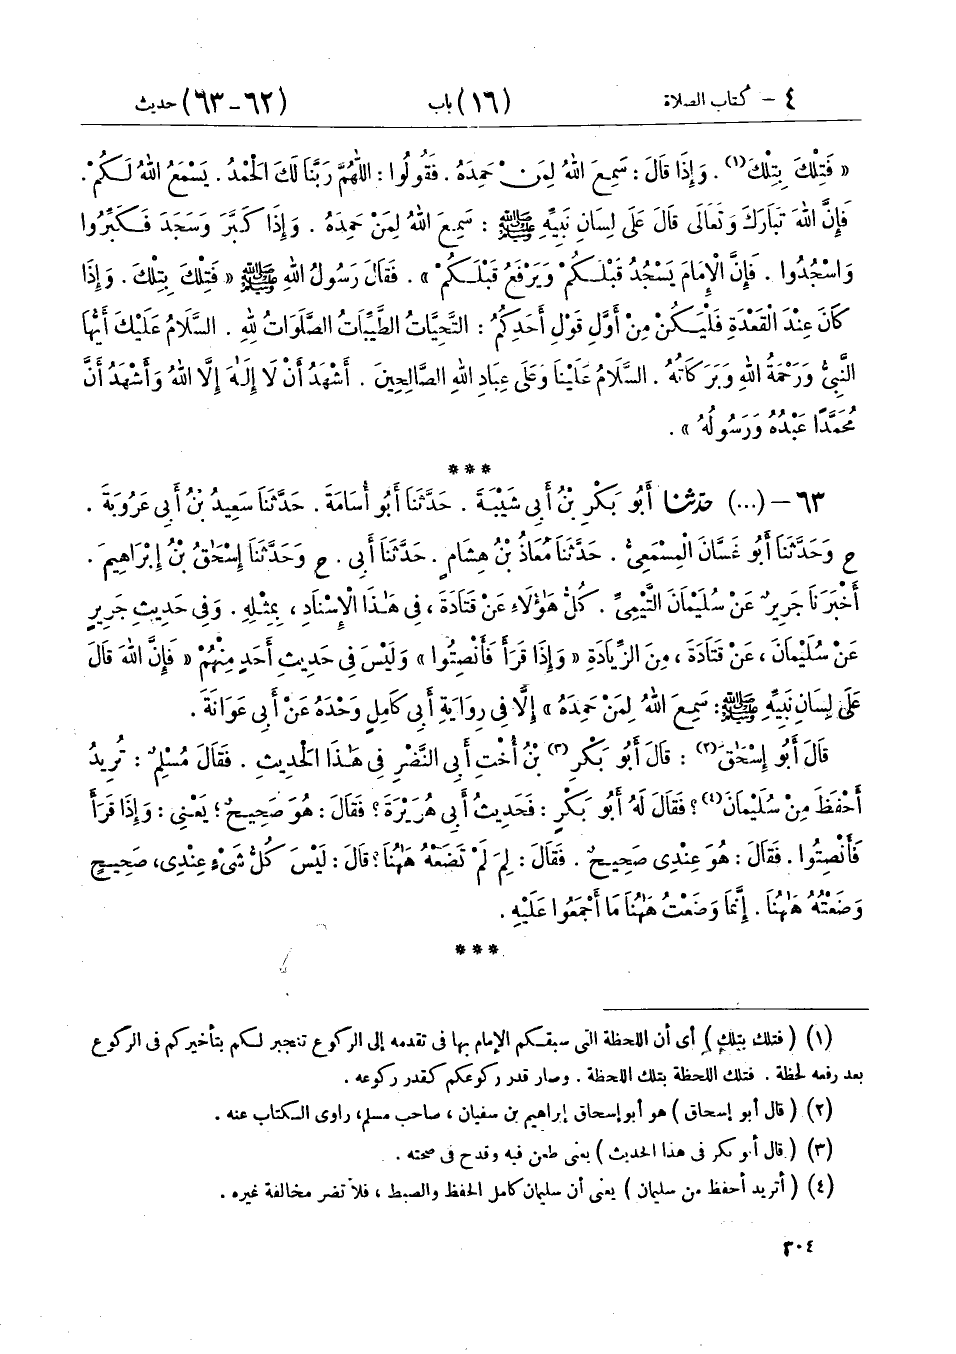 ٤ - كتاب الصلاة (١٦) باب (٦٢-٦٣) حديث
« فَتِلْكَ بِتِلْكَ (١) . وَإِذَا قَالَ : سَمِعَ اللهُ لِمَنْ حَمِدَهُ . فَقُولُوا : اللّٰهُمَّ رَبَّنَا لَكَ الْحَمْدُ . يَسْمَعُ اللهُ لَكُمْ .
فَإِنَّ اللهَ تَبَارَكَ وَتَعَالَى قَالَ عَلَى لِسَانِ نَبِيِّهِ ﷺ : سَمِعَ اللهُ لِمَنْ حَمِدَهُ . وَإِذَا كَبَّرَ وَسَجَدَ فَكَبِّرُوا
وَاسْجُدُوا . فَإِنَّ الْإِمَامَ يَسْجُدُ قَبْلَكُمْ وَيَرْفَعُ قَبْلَكُمْ » . فَقَالَ رَسُولُ اللهِ ﷺ « فَتِلْكَ بِتِلْكَ . وَإِذَا
كَانَ عِنْدَ الْقَعْدَةِ فَلْيَكُنْ مِنْ أَوَّلِ قَوْلِ أَحَدِكُمُ : التَّحِيَّاتُ الطَّيِّبَاتُ الصَّلَوَاتُ لِلهِ . السَّلَامُ عَلَيْكَ أَيُّهَا
النَّبِيُّ وَرَحْمَةُ اللهِ وَبَرَكَاتُهُ . السَّلَامُ عَلَيْنَا وَعَلَى عِبَادِ اللهِ الصَّالِحِينَ . أَشْهَدُ أَنْ لَا إِلٰهَ إِلَّا اللهُ وَأَشْهَدُ أَنَّ
مُحَمَّدًا عَبْدُهُ وَرَسُولُهُ » .
***
٦٣ - (...) حَدَّثَنَا أَبُو بَكْرِ بْنُ أَبِي شَيْبَةَ . حَدَّثَنَا أَبُو أُسَامَةَ . حَدَّثَنَا سَعِيدُ بْنُ أَبِي عَرُوبَةَ .
ح وَحَدَّثَنَا أَبُو غَسَّانَ الْمِسْمَعِيُّ . حَدَّثَنَا مُعَاذُ بْنُ هِشَامٍ . حَدَّثَنَا أَبِي . ح وَحَدَّثَنَا إِسْحٰقُ بْنُ إِبْرَاهِيمَ .
أَخْبَرَنَا جَرِيرٌ عَنْ سُلَيْمَانَ التَّيْمِيِّ . كُلُّ هٰؤُلَاءِ عَنْ قَتَادَةَ ، فِي هٰذَا الْإِسْنَادِ ، بِمِثْلِهِ . وَفِي حَدِيثِ جَرِيرٍ
عَنْ سُلَيْمَانَ ، عَنْ قَتَادَةَ ، مِنَ الزِّيَادَةِ « وَإِذَا قَرَأَ فَأَنْصِتُوا » وَلَيْسَ فِي حَدِيثِ أَحَدٍ مِنْهُمْ « فَإِنَّ اللهَ قَالَ
عَلَى لِسَانِ نَبِيِّهِ ﷺ : سَمِعَ اللهُ لِمَنْ حَمِدَهُ » إِلَّا فِي رِوَايَةِ أَبِي كَامِلٍ وَحْدَهُ عَنْ أَبِي عَوَانَةَ .
قَالَ أَبُو إِسْحٰقَ (٢) : قَالَ أَبُو بَكْرِ (٣) بْنُ أُخْتِ أَبِي النَّضْرِ فِي هٰذَا الْحَدِيثِ . فَقَالَ مُسْلِمٌ : تُرِيدُ
أَحْفَظَ مِنْ سُلَيْمَانَ (٤) ؟ فَقَالَ لَهُ أَبُو بَكْرٍ : فَحَدِيثُ أَبِي هُرَيْرَةَ ؟ فَقَالَ : هُوَ صَحِيحٌ ؛ يَعْنِي : وَإِذَا قَرَأَ
فَأَنْصِتُوا . فَقَالَ : هُوَ عِنْدِي صَحِيحٌ . فَقَالَ : لِمَ لَمْ تَضَعْهُ هٰهُنَا ؟ قَالَ : لَيْسَ كُلُّ شَيْءٍ عِنْدِي ، صَحِيحٍ
وَضَعْتُهُ هٰهُنَا . إِنَّمَا وَضَعْتُ هٰهُنَا مَا أَجْمَعُوا عَلَيْهِ .
***
(١) ( فتلك بتلك ) أى أن اللحظة التى سبقكم الإمام بها فى تقدمه إلى الركوع تنجبر لكم بتأخيركم فى الركوع
بعد رفعه لحظة . فتلك اللحظة بتلك اللحظة . وصار قدر ركوعكم كقدر ركوعه .
(٢) ( قال أبو إسحاق ) هو أبو إسحاق إبراهيم بن سفيان ، صاحب مسلم ، راوى الكتاب عنه .
(٣) ( قال أبو بكر فى هذا الحديث ) يعنى طعن فيه وقدح فى صحته .
(٤) ( أتريد أحفظ من سليمان ) يعنى أن سليمان كامل الحفظ والضبط ، فلا تضر مخالفة غيره .
٣٠٤